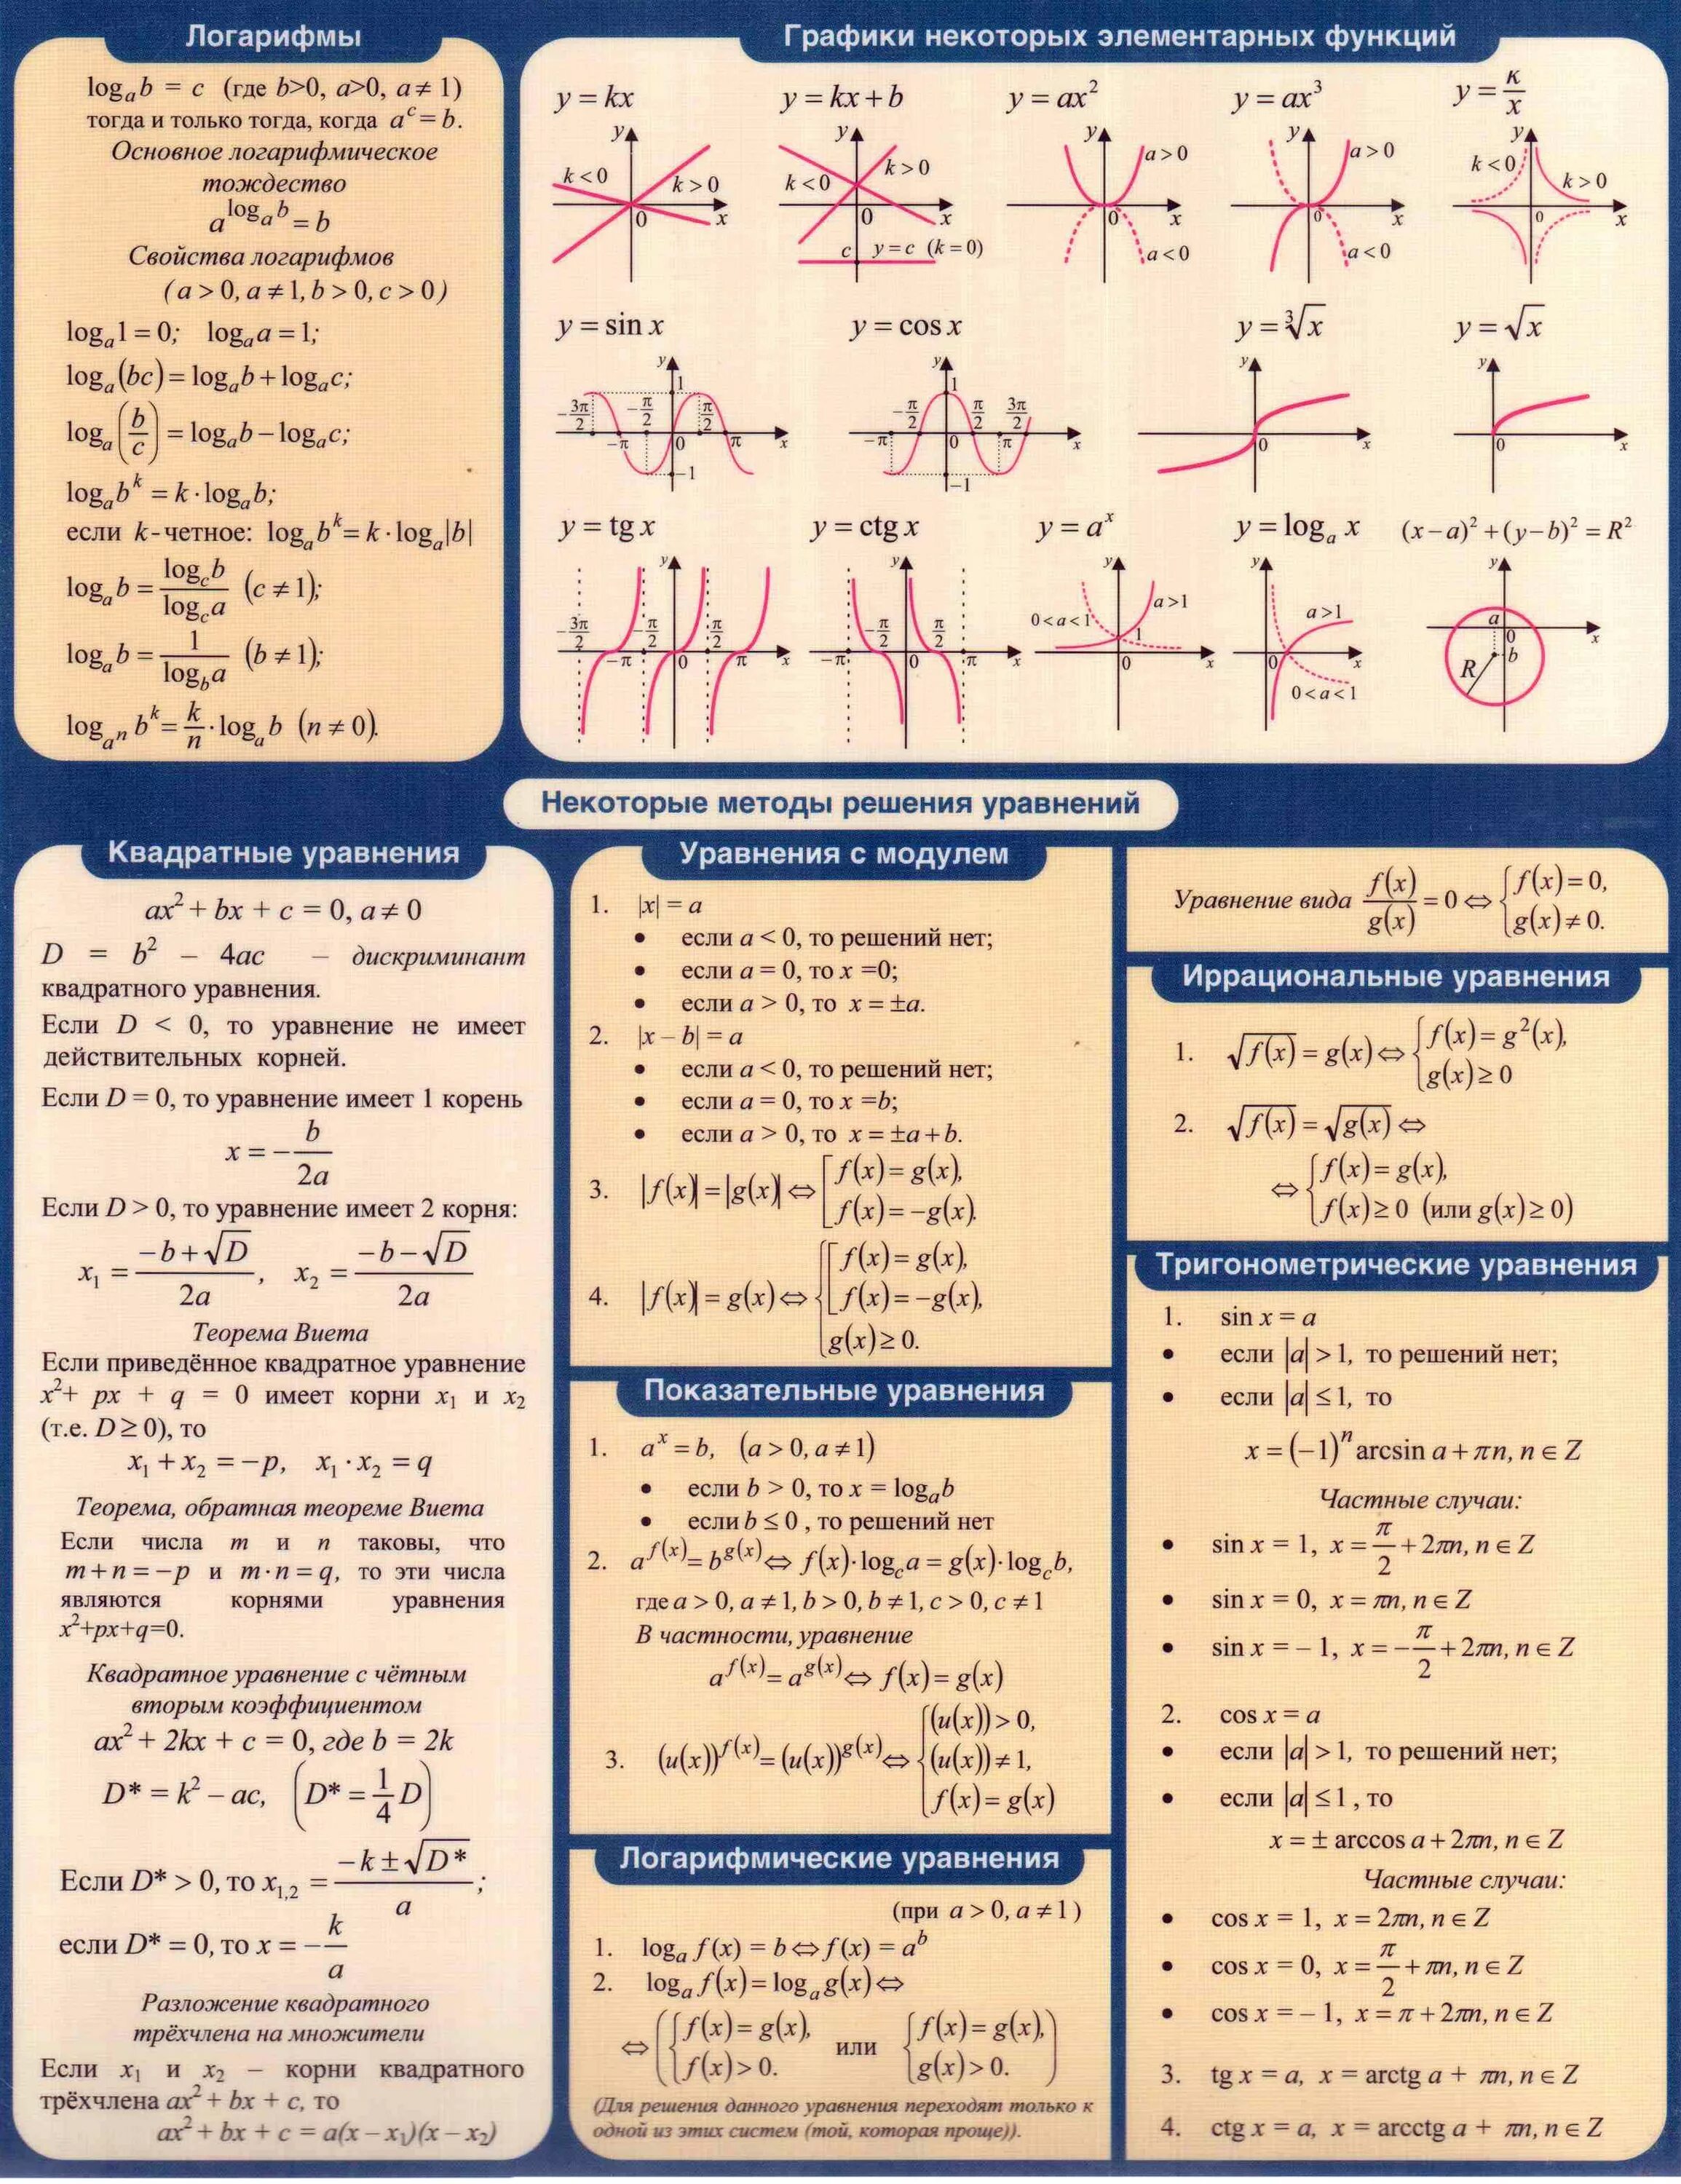 Логарифмы
logₐb = c (где b>0, a>0, a≠1)
тогда и только тогда, когда aᶜ = b.
Основное логарифмическое
тождество
a^(logₐb) = b
Свойства логарифмов
(a > 0, a ≠ 1, b > 0, c > 0)
logₐ1 = 0; logₐa = 1;
logₐ(bc) = logₐb + logₐc;
logₐ(b/c) = logₐb − logₐc;
logₐbᵏ = k · logₐb;
если k-четное: logₐbᵏ = k · logₐ|b|
logₐb = log_c b / log_c a (c ≠ 1);
logₐb = 1 / log_b a (b ≠ 1);
log_(aⁿ) bᵏ = k/n · logₐb (n ≠ 0).
Графики некоторых элементарных функций
y = kx
k < 0 k > 0 y x 0
y = kx + b
k < 0 k > 0 y x 0
c y = c (k = 0)
y = ax²
a > 0 a < 0 y x 0
y = ax³
a > 0 a < 0 y x 0
y = к/x
k < 0 k > 0 y x 0
y = sin x
y 1 −3π/2 −π/2 π/2 −π 0 π x −1
y = cos x
y 1 −π/2 π/2 3π/2 −π 0 π x −1
y = ∛x
y 0 x
y = √x
y 0 x
y = tg x
y −3π/2 −π/2 π/2 −π 0 π x
y = ctg x
y −π/2 π/2 −π 0 π x
y = aˣ
y 0 < a < 1 a > 1 1 0 x
y = logₐ x
y a > 1 0 x 0 < a < 1
(x − a)² + (y − b)² = R²
y a 0 x b R
Некоторые методы решения уравнений
Квадратные уравнения
ax² + bx + c = 0, a ≠ 0
D = b² − 4ac – дискриминант
квадратного уравнения.
Если D < 0, то уравнение не имеет
действительных корней.
Если D = 0, то уравнение имеет 1 корень
x = −b/2a
Если D > 0, то уравнение имеет 2 корня:
x₁ = (−b + √D)/2a, x₂ = (−b − √D)/2a
Теорема Виета
Если приведённое квадратное уравнение
x² + px + q = 0 имеет корни x₁ и x₂
(т.е. D ≥ 0), то
x₁ + x₂ = −p, x₁ · x₂ = q
Теорема, обратная теореме Виета
Если числа m и n таковы, что
m + n = −p и m · n = q, то эти числа
являются корнями уравнения
x²+px+q=0.
Квадратное уравнение с чётным
вторым коэффициентом
ax² + 2kx + c = 0, где b = 2k
D* = k² − ac, (D* = 1/4 D)
Если D* > 0, то x₁,₂ = (−k ± √D*)/a;
если D* = 0, то x = −k/a
Разложение квадратного
трёхчлена на множители
Если x₁ и x₂ – корни квадратного
трёхчлена ax² + bx + c, то
ax² + bx + c = a(x − x₁)(x − x₂)
Уравнения с модулем
1. |x| = a
• если a < 0, то решений нет;
• если a = 0, то x =0;
• если a > 0, то x = ±a.
2. |x – b| = a
• если a < 0, то решений нет;
• если a = 0, то x =b;
• если a > 0, то x = ±a + b.
3. |f(x)| = |g(x)| ⇔ [ f(x) = g(x),
f(x) = −g(x).
4. |f(x)| = g(x) ⇔ { [ f(x) = g(x),
f(x) = −g(x),
g(x) ≥ 0.
Показательные уравнения
1. aˣ = b, (a > 0, a ≠ 1)
• если b > 0, то x = logₐb
• если b ≤ 0 , то решений нет
2. a^f(x) = b^g(x) ⇔ f(x) · log_c a = g(x) · log_c b,
где a > 0, a ≠ 1, b > 0, b ≠ 1, c > 0, c ≠ 1
В частности, уравнение
a^f(x) = a^g(x) ⇔ f(x) = g(x)
3. (u(x))^f(x) = (u(x))^g(x) ⇔ { (u(x)) > 0,
(u(x)) ≠ 1,
f(x) = g(x)
Логарифмические уравнения
(при a > 0, a ≠ 1 )
1. logₐ f(x) = b ⇔ f(x) = aᵇ
2. logₐ f(x) = logₐ g(x) ⇔
⇔ ( { f(x) = g(x), f(x) > 0. или { f(x) = g(x), g(x) > 0. )
(Для решения данного уравнения переходят только к
одной из этих систем (той, которая проще)).
Уравнение вида f(x)/g(x) = 0 ⇔ { f(x) = 0,
g(x) ≠ 0.
Иррациональные уравнения
1. √f(x) = g(x) ⇔ { f(x) = g²(x),
g(x) ≥ 0
2. √f(x) = √g(x) ⇔
⇔ { f(x) = g(x),
f(x) ≥ 0 (или g(x) ≥ 0)
Тригонометрические уравнения
1. sin x = a
• если |a| > 1, то решений нет;
• если |a| ≤ 1, то
x = (−1)ⁿ arcsin a + πn, n ∈ Z
Частные случаи:
• sin x = 1, x = π/2 + 2πn, n ∈ Z
• sin x = 0, x = πn, n ∈ Z
• sin x = − 1, x = −π/2 + 2πn, n ∈ Z
2. cos x = a
• если |a| > 1, то решений нет;
• если |a| ≤ 1 , то
x = ± arccos a + 2πn, n ∈ Z
Частные случаи:
• cos x = 1, x = 2πn, n ∈ Z
• cos x = 0, x = π/2 + πn, n ∈ Z
• cos x = − 1, x = π + 2πn, n ∈ Z
3. tg x = a, x = arctg a + πn, n ∈ Z
4. ctg x = a, x = arcctg a + πn, n ∈ Z